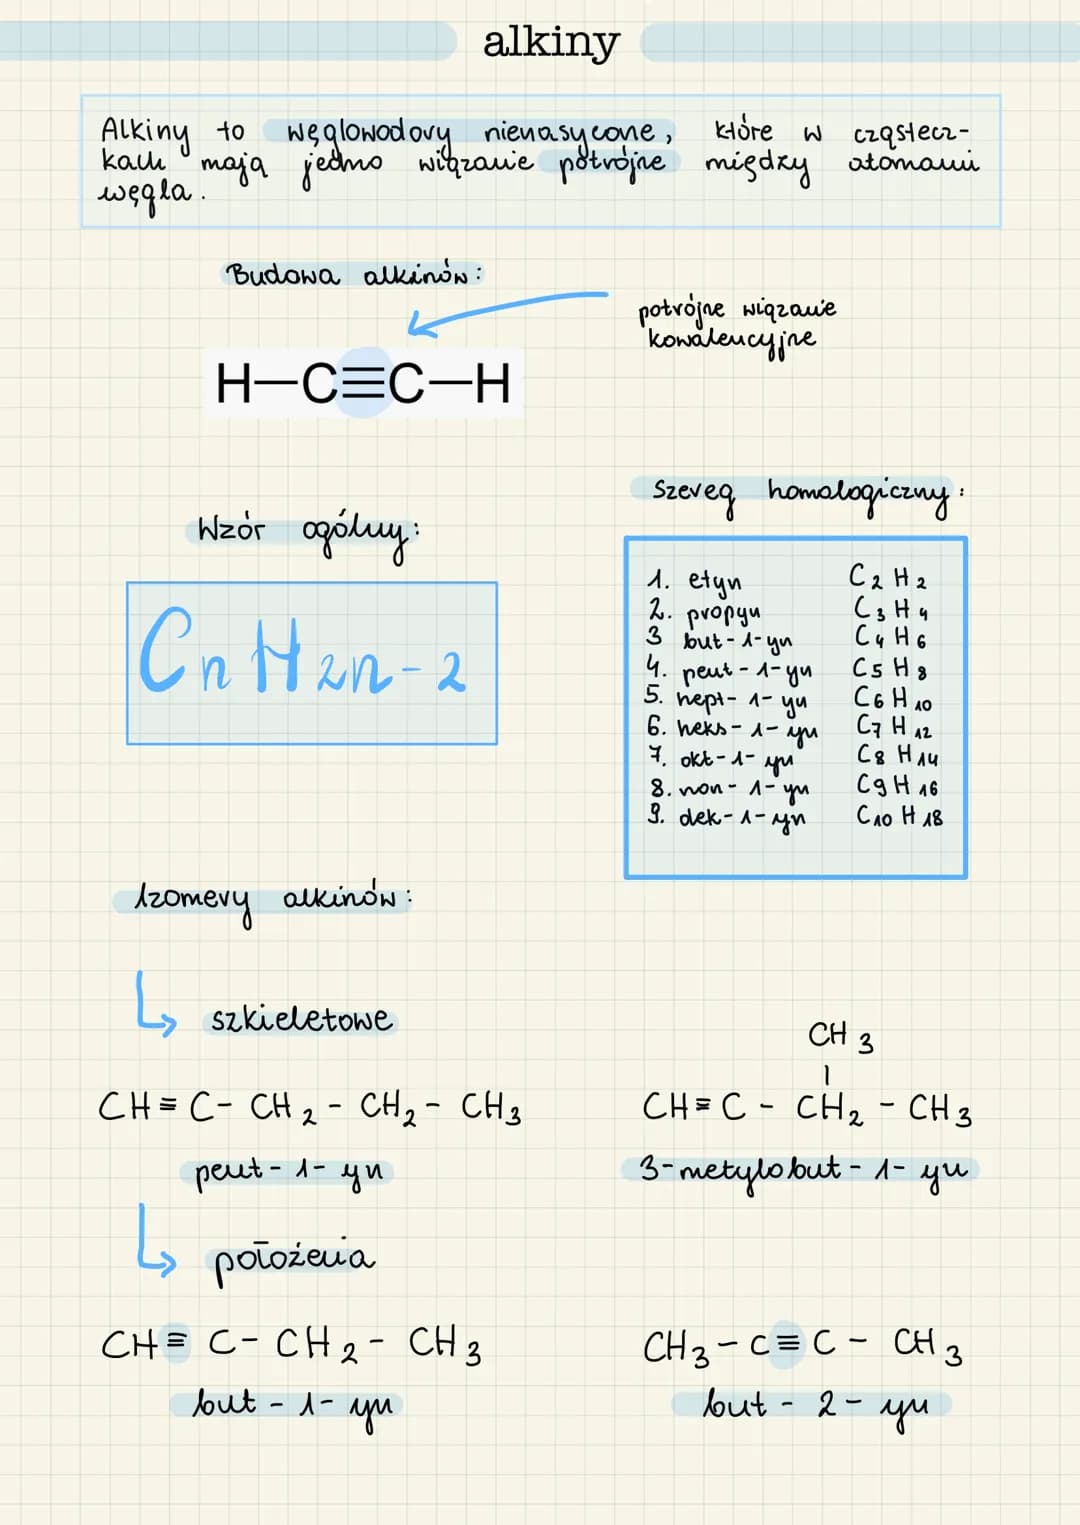 alkiny
Alkiny to węglowodory nienasycone, które w cząstecz-
kach mają jedno wiązanie potrójne między atomami
węgla.
Budowa alkinów:
potrójne wiązanie
kowalencyjne
H—C≡C—H
Szereg homologiczny:
Wzór ogólny:
CnH2n-2
1. etyn C2H2
2. propyn C3H4
3 but-1-yn C4H6
4. pent-1-yn C5H8
5. hept-1-yn C6H10
6. heks-1-yn C7H12
7. okt-1-yn C8H14
8. non-1-yn C9H16
9. dek-1-yn C10H18
Izomery alkinów:
szkieletowe
CH3
CH≡C-CH2-CH2-CH3
CH≡C-CH2-CH3
pent-1-yn
3-metylobut-1-yn
położenia
CH≡C-CH2-CH3
CH3-C≡C-CH3
but-1-yn
but-2-yn